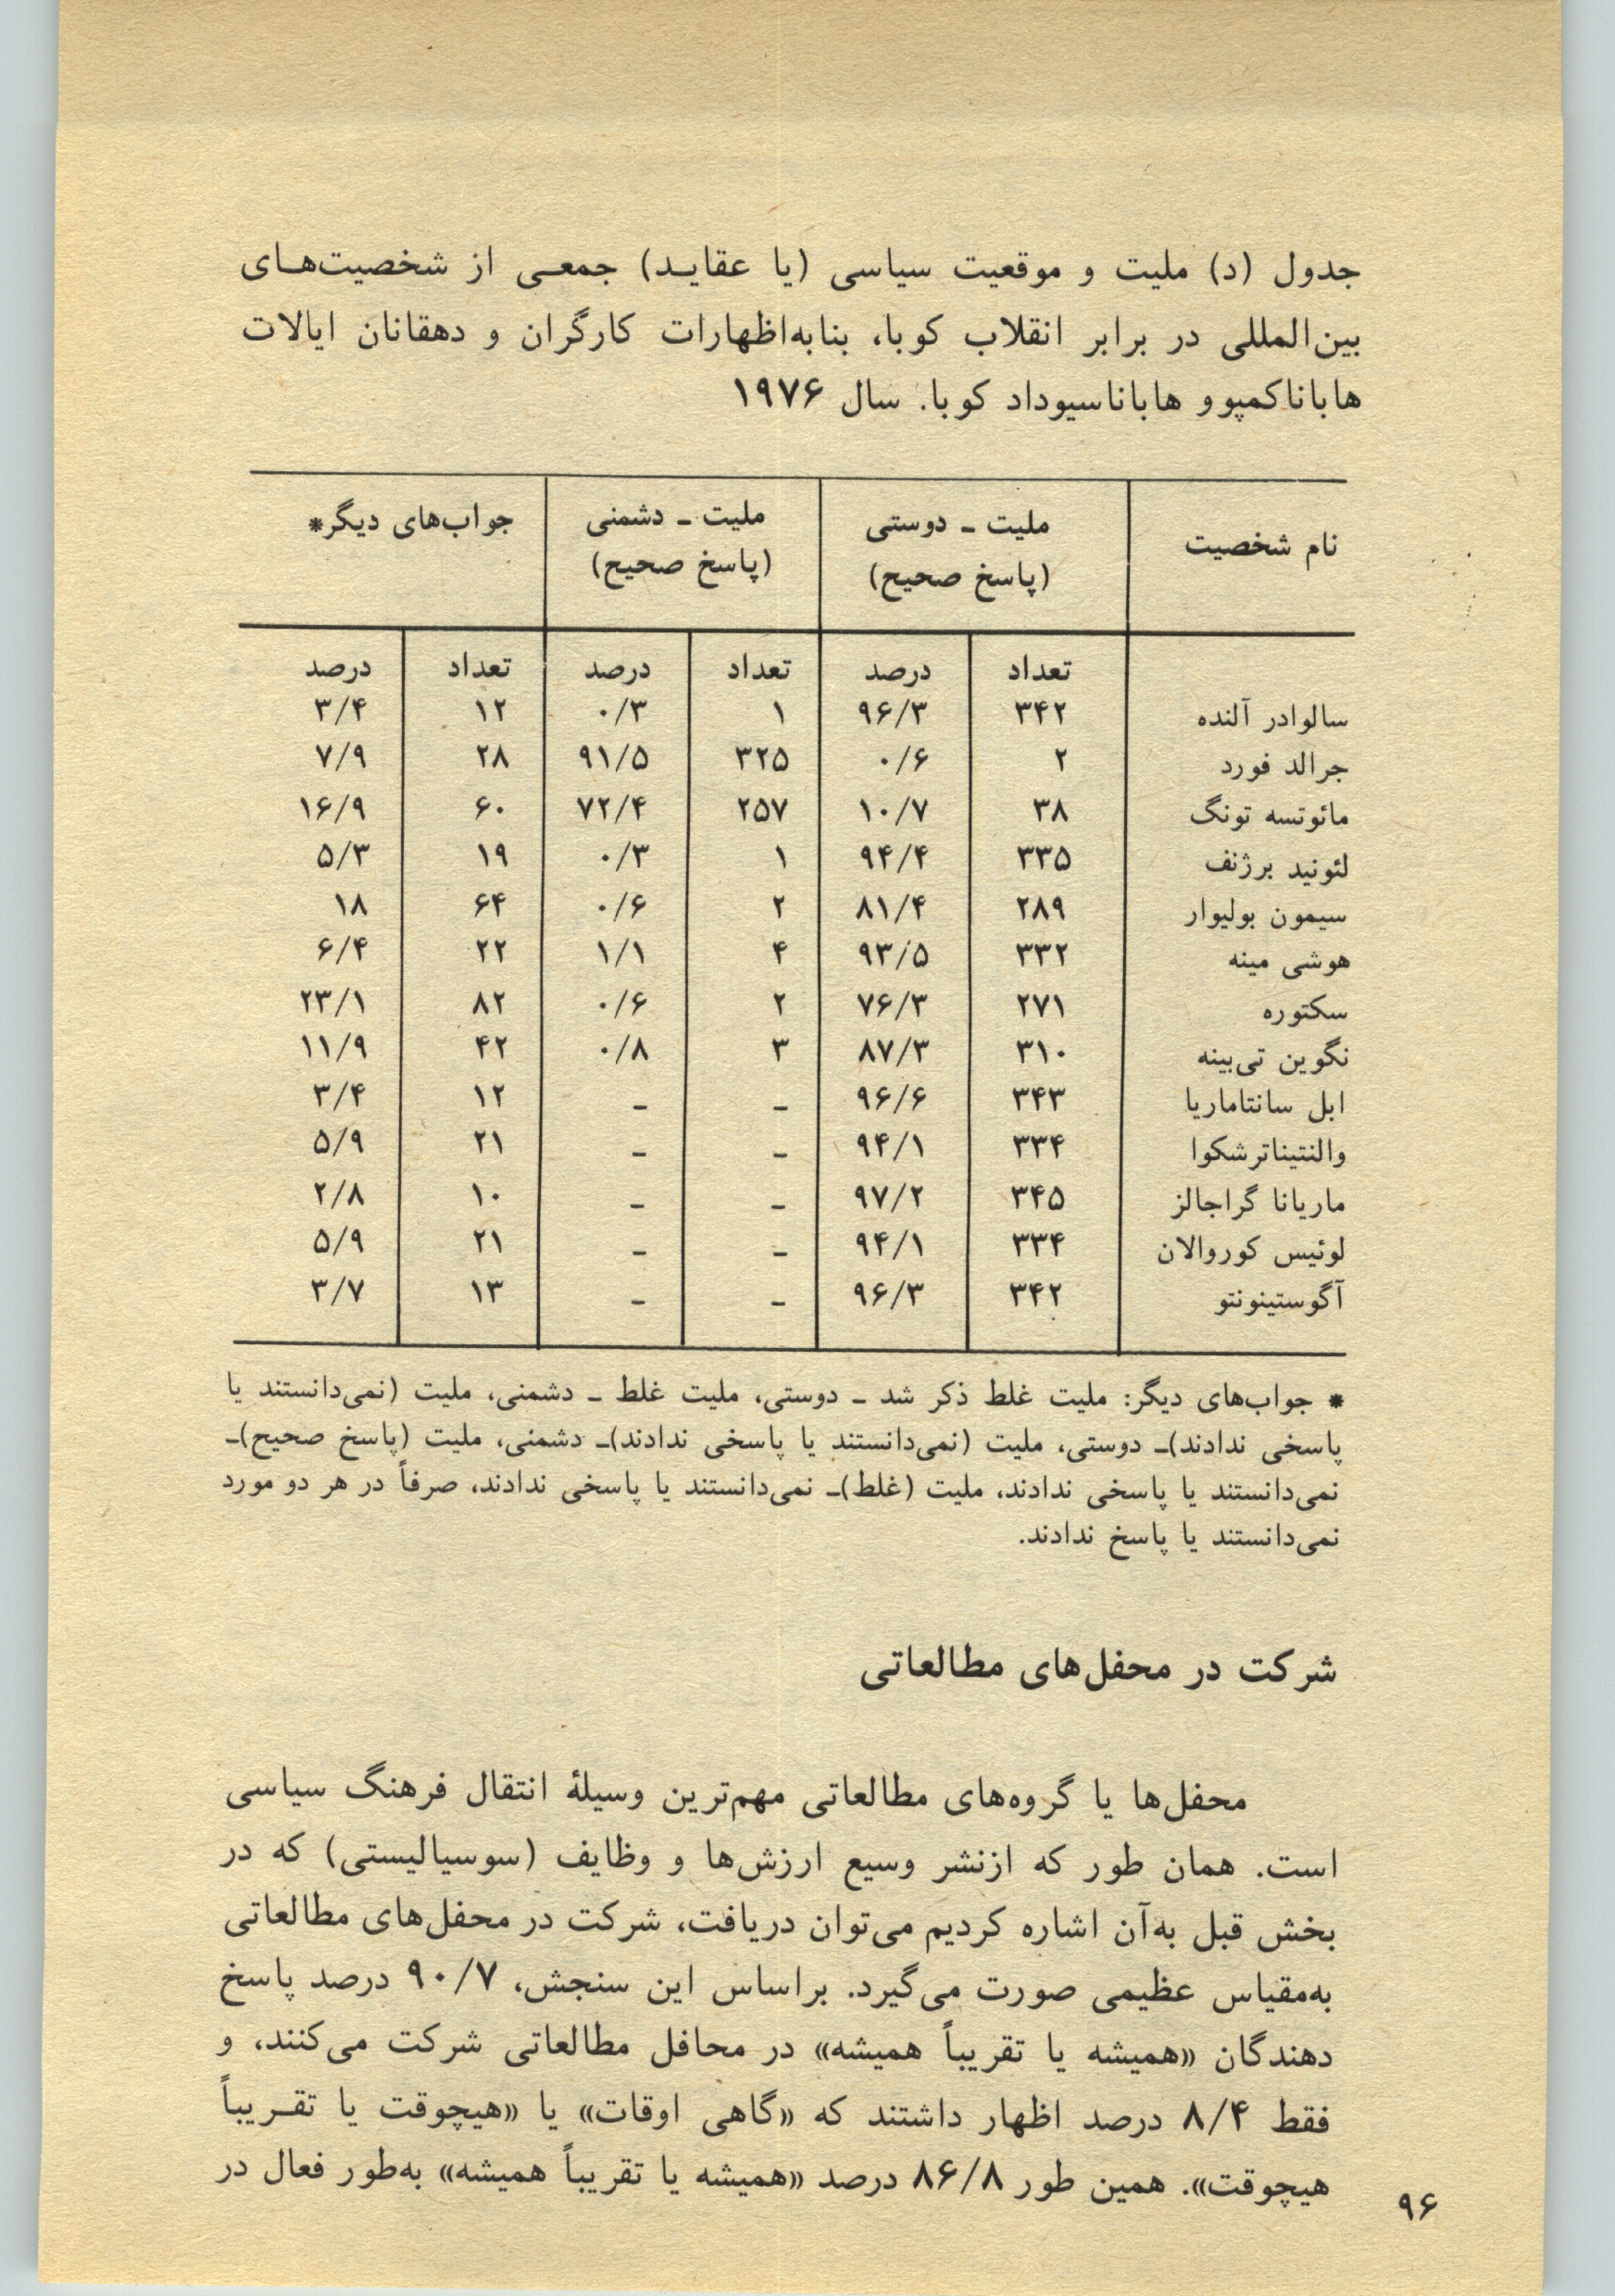 جدول (د) ملیت و موقعیت سیاسی (یا عقاید) جمعی از شخصیت‌های
بین‌المللی در برابر انقلاب کوبا، بنابه‌اظهارات کارگران و دهقانان ایالات
هاباناکمپوو هاباناسیوداد کوبا. سال ۱۹۷۶
نام شخصیت	ملیت ـ دوستی	ملیت ـ دشمنی	جواب‌های دیگر*
(پاسخ صحیح)	(پاسخ صحیح)
تعداد	درصد	تعداد	درصد	تعداد	درصد
سالوادر آلنده	۳۴۲	۹۶/۳	۱	۰/۳	۱۲	۳/۴
جرالد فورد	۲	۰/۶	۳۲۵	۹۱/۵	۲۸	۷/۹
مائوتسه تونگ	۳۸	۱۰/۷	۲۵۷	۷۲/۴	۶۰	۱۶/۹
لئونید برژنف	۳۳۵	۹۴/۴	۱	۰/۳	۱۹	۵/۳
سیمون بولیوار	۲۸۹	۸۱/۴	۲	۰/۶	۶۴	۱۸
هوشی مینه	۳۳۲	۹۳/۵	۴	۱/۱	۲۲	۶/۴
سکتوره	۲۷۱	۷۶/۳	۲	۰/۶	۸۲	۲۳/۱
نگوین تی‌بینه	۳۱۰	۸۷/۳	۳	۰/۸	۴۲	۱۱/۹
ابل سانتاماریا	۳۴۳	۹۶/۶	ـ	ـ	۱۲	۳/۴
والنتیناترشکوا	۳۳۴	۹۴/۱	ـ	ـ	۲۱	۵/۹
ماریانا گراجالز	۳۴۵	۹۷/۲	ـ	ـ	۱۰	۲/۸
لوئیس کوروالان	۳۳۴	۹۴/۱	ـ	ـ	۲۱	۵/۹
آگوستینونتو	۳۴۲	۹۶/۳	ـ	ـ	۱۳	۳/۷
* جواب‌های دیگر: ملیت غلط ذکر شد ـ دوستی، ملیت غلط ـ دشمنی، ملیت (نمی‌دانستند یا
پاسخی ندادند)ـ دوستی، ملیت (نمی‌دانستند یا پاسخی ندادند)ـ دشمنی، ملیت (پاسخ صحیح)ـ
نمی‌دانستند یا پاسخی ندادند، ملیت (غلط)ـ نمی‌دانستند یا پاسخی ندادند، صرفاً در هر دو مورد
نمی‌دانستند یا پاسخ ندادند.
شرکت در محفل‌های مطالعاتی
محفل‌ها یا گروه‌های مطالعاتی مهم‌ترین وسیلهٔ انتقال فرهنگ سیاسی
است. همان طور که ازنشر وسیع ارزش‌ها و وظایف (سوسیالیستی) که در
بخش قبل به‌آن اشاره کردیم می‌توان دریافت، شرکت در محفل‌های مطالعاتی
به‌مقیاس عظیمی صورت می‌گیرد. براساس این سنجش، ۹۰/۷ درصد پاسخ
دهندگان «همیشه یا تقریباً همیشه» در محافل مطالعاتی شرکت می‌کنند، و
فقط ۸/۴ درصد اظهار داشتند که «گاهی اوقات» یا «هیچوقت یا تقریباً
هیچوقت». همین طور ۸۶/۸ درصد «همیشه یا تقریباً همیشه» به‌طور فعال در
۹۶